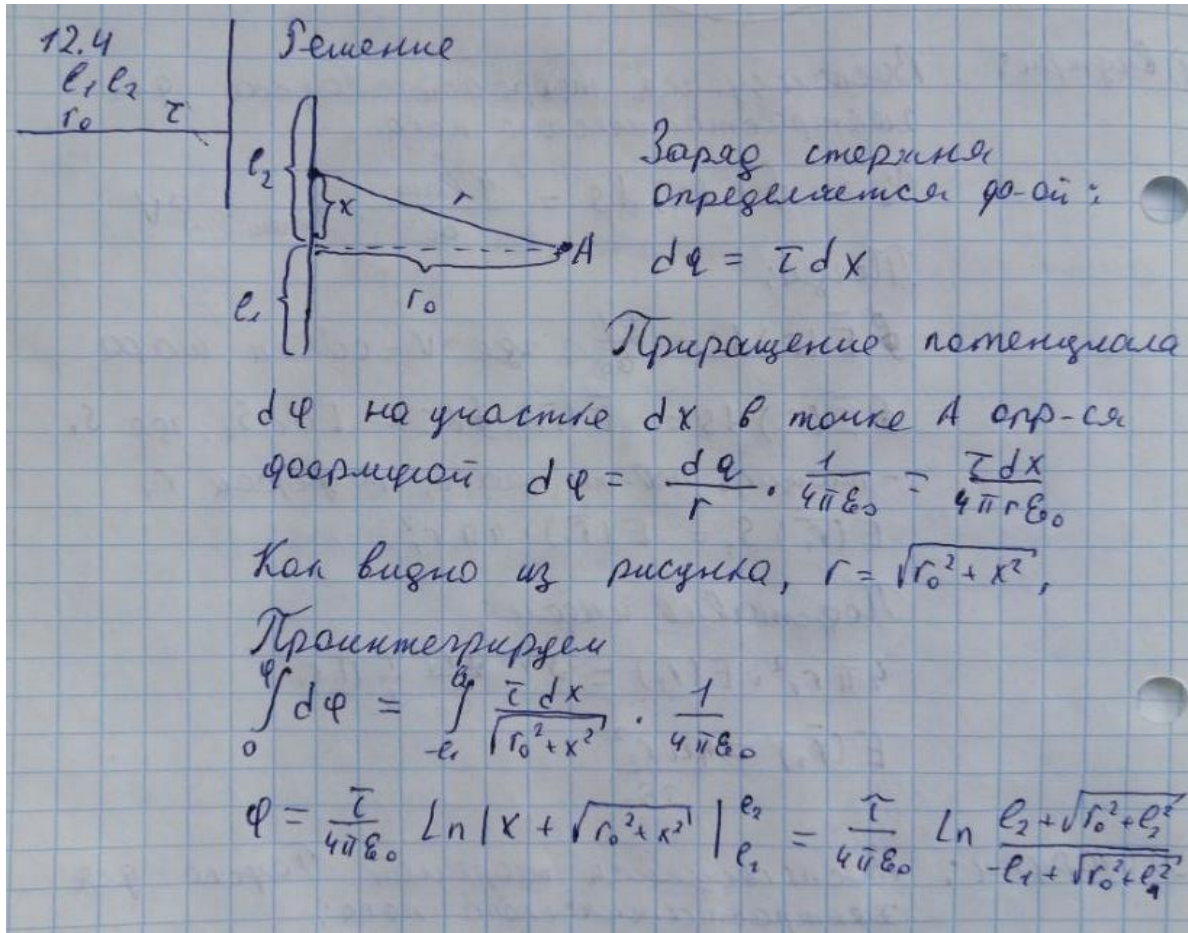 12.4
l₁ l₂
r₀ τ
Решение
l₂
x
r
A
r₀
l₁
Заряд стержня
определяется ф-ой:
dq = τ dx
Приращение потенциала
dφ на участке dx в точке A опр-ся
формулой dφ = dq/r · 1/4πε₀ = τdx/4πrε₀
Как видно из рисунка, r = √(r₀² + x²),
Проинтегрируем
∫₀^φ dφ = ∫₋ₗ₁^l₂ τ dx/√(r₀² + x²) · 1/4πε₀
φ = τ/4πε₀ Ln |x + √(r₀² + x²) |_l₁^l₂ = τ/4πε₀ Ln (l₂ + √(r₀² + l₂²))/(-l₁ + √(r₀² + l₁²))